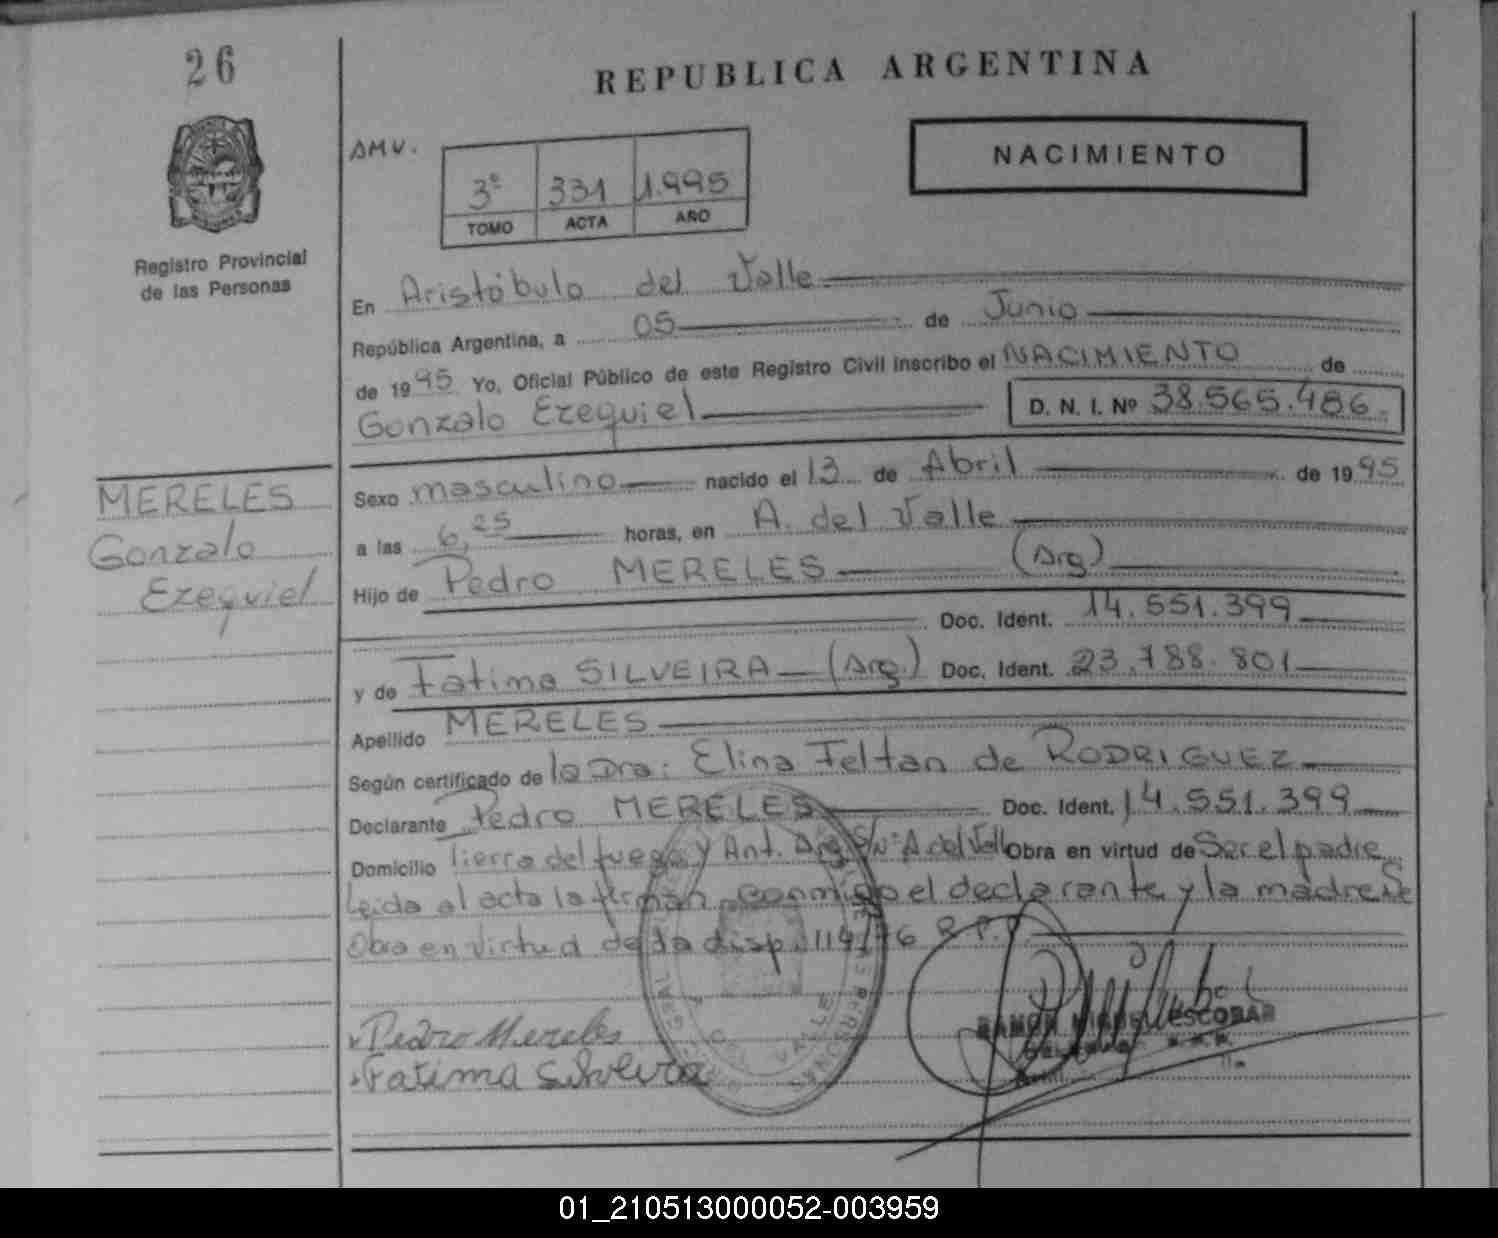 26
REPUBLICA ARGENTINA
AMV.
NACIMIENTO
3º 331 1.995
TOMO ACTA AÑO
Registro Provincial
de las Personas
En Aristóbulo del Valle
República Argentina, a 05 de Junio
de 1995 Yo, Oficial Público de este Registro Civil inscribo el NACIMIENTO de
Gonzalo Ezequiel D. N. I. Nº 38.565.486.
MERELES
Gonzalo
Ezequiel
Sexo masculino nacido el 13 de Abril de 1995
a las 6,25 horas, en A. del Valle
Hijo de Pedro MERELES (Arg)
Doc. Ident. 14.551.399
y de Fatima SILVEIRA (Arg.) Doc. Ident. 23.788.801
Apellido MERELES
Según certificado de la Dra: Elina Feltan de RODRIGUEZ
Declarante Pedro MERELES Doc. Ident. 14.551.399
Domicilio Tierra del fuego y Ant. Arg. S/Nº A del Valle Obra en virtud de Ser el padre
Leida al acta la firman conmigo el declarante y la madre Se
Obra en virtud de la disp. 119/76 R.P.P.
Pedro Mereles
Fatima Silveira
RAMON ESCOBAR
DEL VALLE
01_210513000052-003959